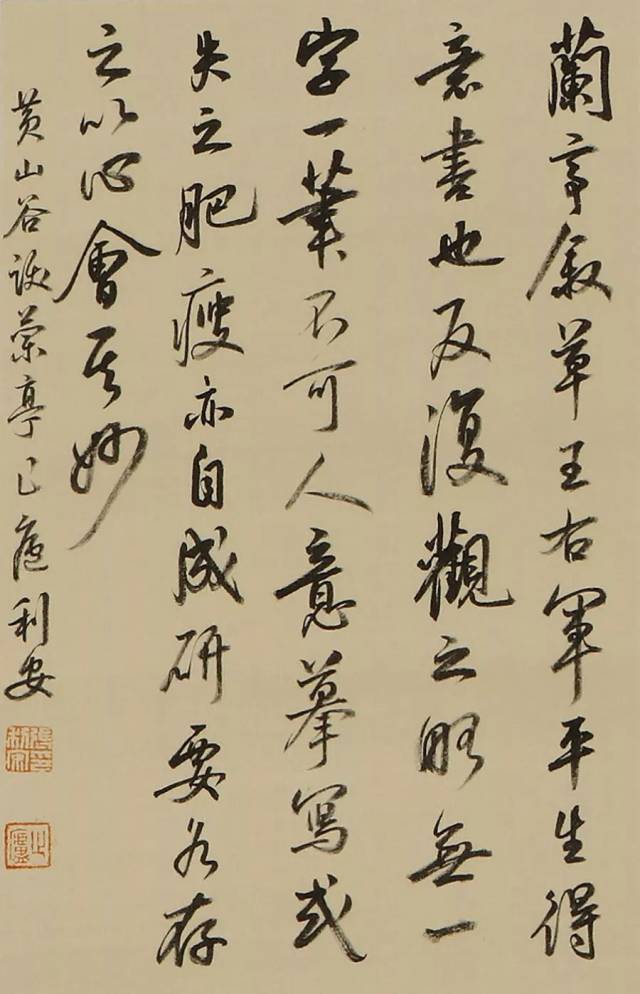 蘭亭敘草王右軍平生得
意書也反復觀之略無一
字一筆不可人意摹寫或
失之肥瘦亦自成研要各存
之以心會其妙
黄山谷跋蘭亭已庐利安